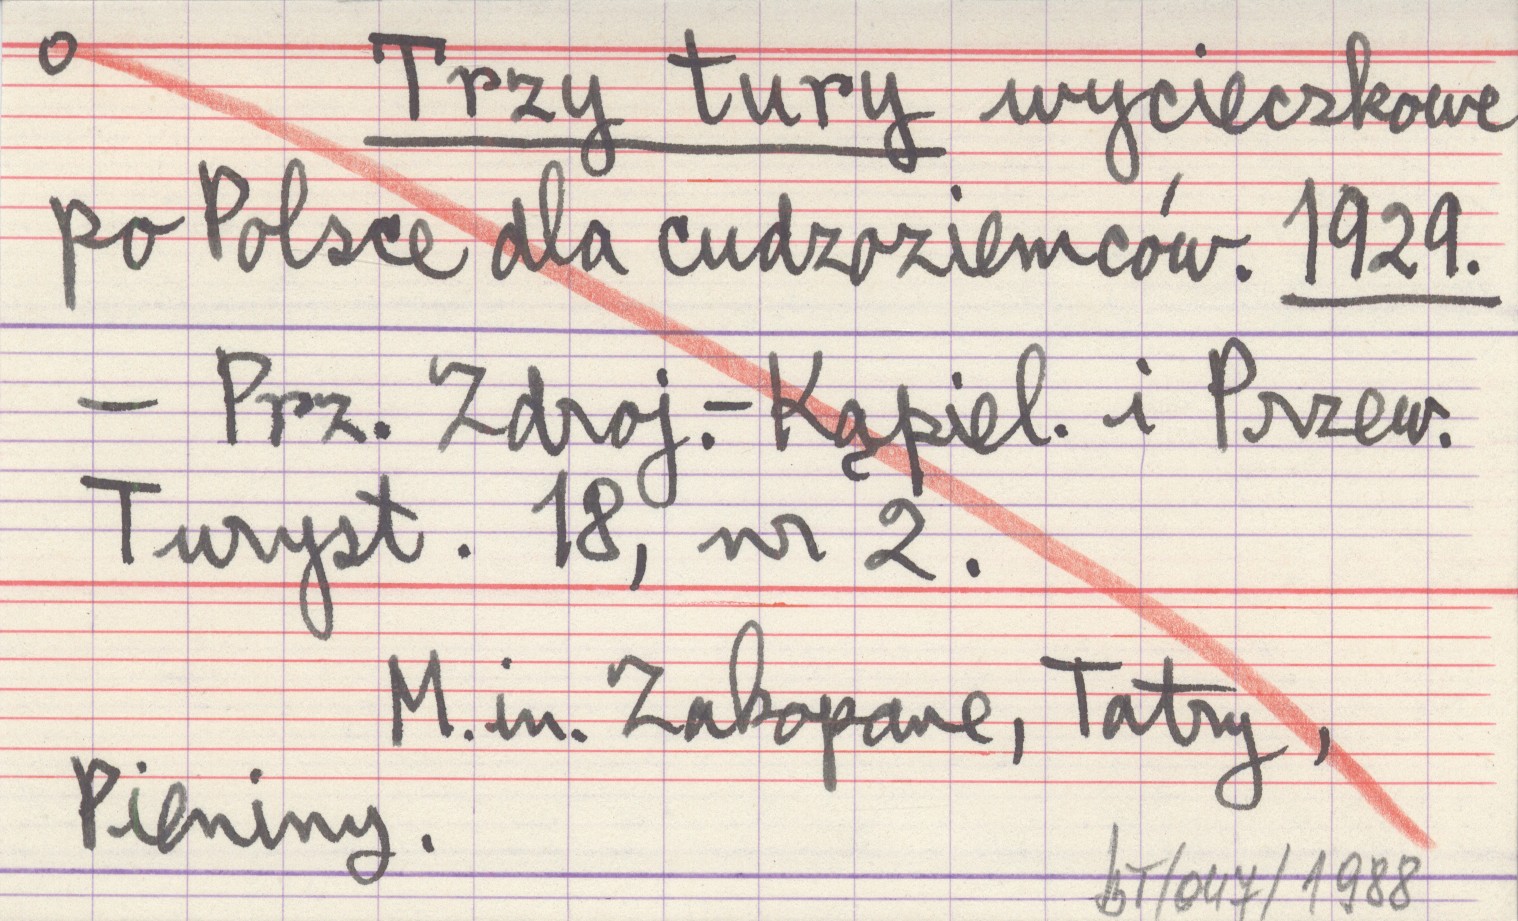 o Trzy tury wycieczkowe
po Polsce dla cudzoziemców. 1929.
— Prz. Zdroj.-Kąpiel. i Przew.
Turyst. 18, nr 2.
M.in. Zakopane, Tatry,
Pieniny.
bT/047/1988